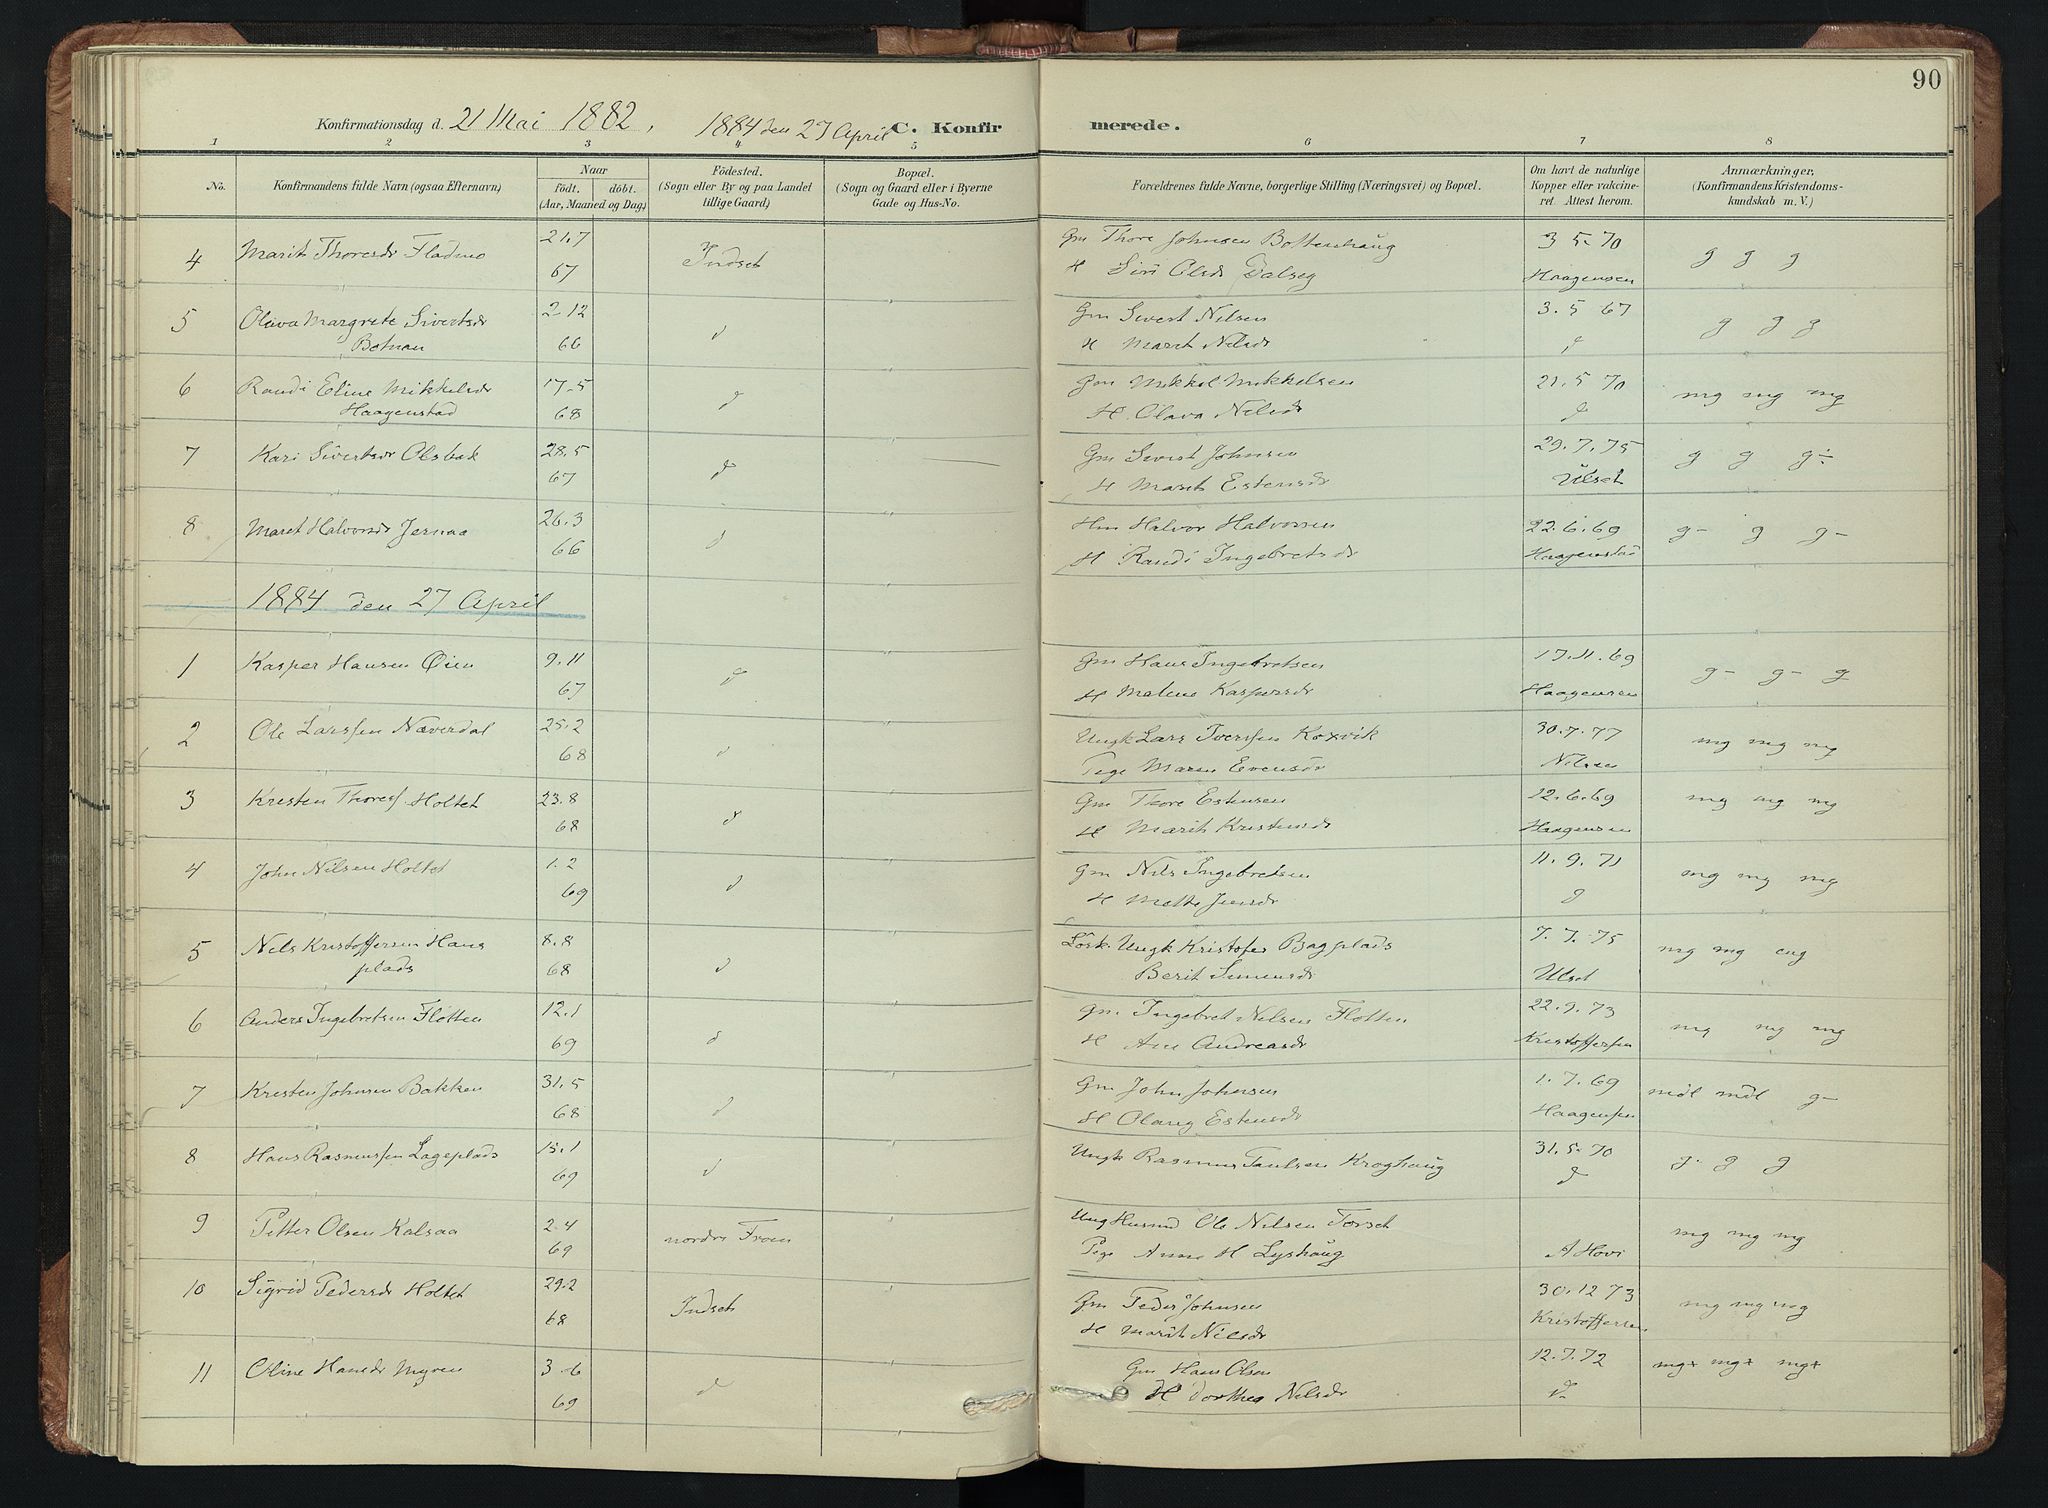 90
Konfirmationsdag d. 21 Mai 1882, 1884 den 27 April C. Konfirmerede.
1 2 3 4 5 6 7 8
No. Konfirmandens fulde Navn (ogsaa Efternavn) Naar födt. döbt. (Aar, Maaned og Dag.) Födested. (Sogn eller By og paa Landet tillige Gaard) Bopæl. (Sogn og Gaard eller i Byerne Gade og Hus-No. Forældrenes fulde Navne, borgerlige Stilling (Næringsvei) og Bopæl. Om havt de naturlige Kopper eller vakcineret. Attest herom. Anmærkninger, (Konfirmandens Kristendomskundskab m. V.)
4 Marit Thoresdr Fladmo 21.7 Indset Gm Thore Johnsen Bottenhaug 3 5-70 g g g
67 H Siri Olsdr Dalseg Haagensen
5 Olava Margrete Sivertsdr 2-12 d Gm Sivert Nilsen 3.5 67 g g g
Botnan 66 H Marit Nilsdr d
6 Randi Eline Mikkelsdr 17-5 d Gm Mikkel Mikkelsen 21.5 70 mg mg mg
Haagenstad 68 H. Olava Nilsdr d
7 Kari Sivertsdr Olsbak 28.5 d Gm Sivert Johnsen 29.7.75 g g g÷
67 H Marit Estensdr Ulset
8 Maret Halvorsdr Jernaa 26.3 d Hm Halvor Halvorsen 22.6.69 g- g g-
66 H Randi Ingebretsdr Haagenstad
1884 den 27 April
1 Kasper Hansen Øien 9.11 d Gm Hans Ingebretsen 17.11.69 g- g- g
67 H Malene Kaspersdr Haagensen
2 Ole Larssen Næverdal 25.2 d Ungk Lars Iverssen Koxvik 30.7.77 mg mg mg
68 Pige Maren Evensdr Nilsen
3 Kresten Thoress Holtet 23.8 d Gm Thore Estensen 22.6.69 mg mg mg
68 H Marit Kristensdr Haagensen
4 John Nilsen Holtet 1.2 d Gm Nils Ingebretsen 11.9.71 mg mg mg
69 H Mette Jensdr d
5 Nils Kristoffersen Hans 8.8 d Løsk. Ungk Kristofer Bagplads 7.7.75 mg mg mg
plads 68 Berit Simensdr Ulset
6 Anders Ingebretsen Fløtten 12.1 d Gm. Ingebret Nilsen Fløtten 22.9.73 mg mg mg
69 H Ane Andreasdr Kristoffersen
7 Kresten Johnsen Bakken 31.5 d Gm John Johnsen 1.7.69 mdl mdl g-
68 H Olaug Estensdr Haagensen
8 Hans Rasmussen Lageplads 15.1 d Ungk Rasmus Paulsen Kroghaug 31.5-70 g- g g
69 d
9 Petter Olsen Kalsaa 2.4 nordre Fron Ung Husmd Ole Nilsen Torset mg mg mg
69 Pige Anne H Lyshaug A Hovi
10 Sigrid Pedersdr Holtet 29.2 Indset Gm Peder Johnsen 30.12 73 mg mg mg
68 H Marit Nilsdr Kristoffersen
11 Oline Hansdr Myren 3-6 d Gm Hans Olsen 12.7.72 mg+ mg+ mg+
69 H Dorthea Nilsdr d